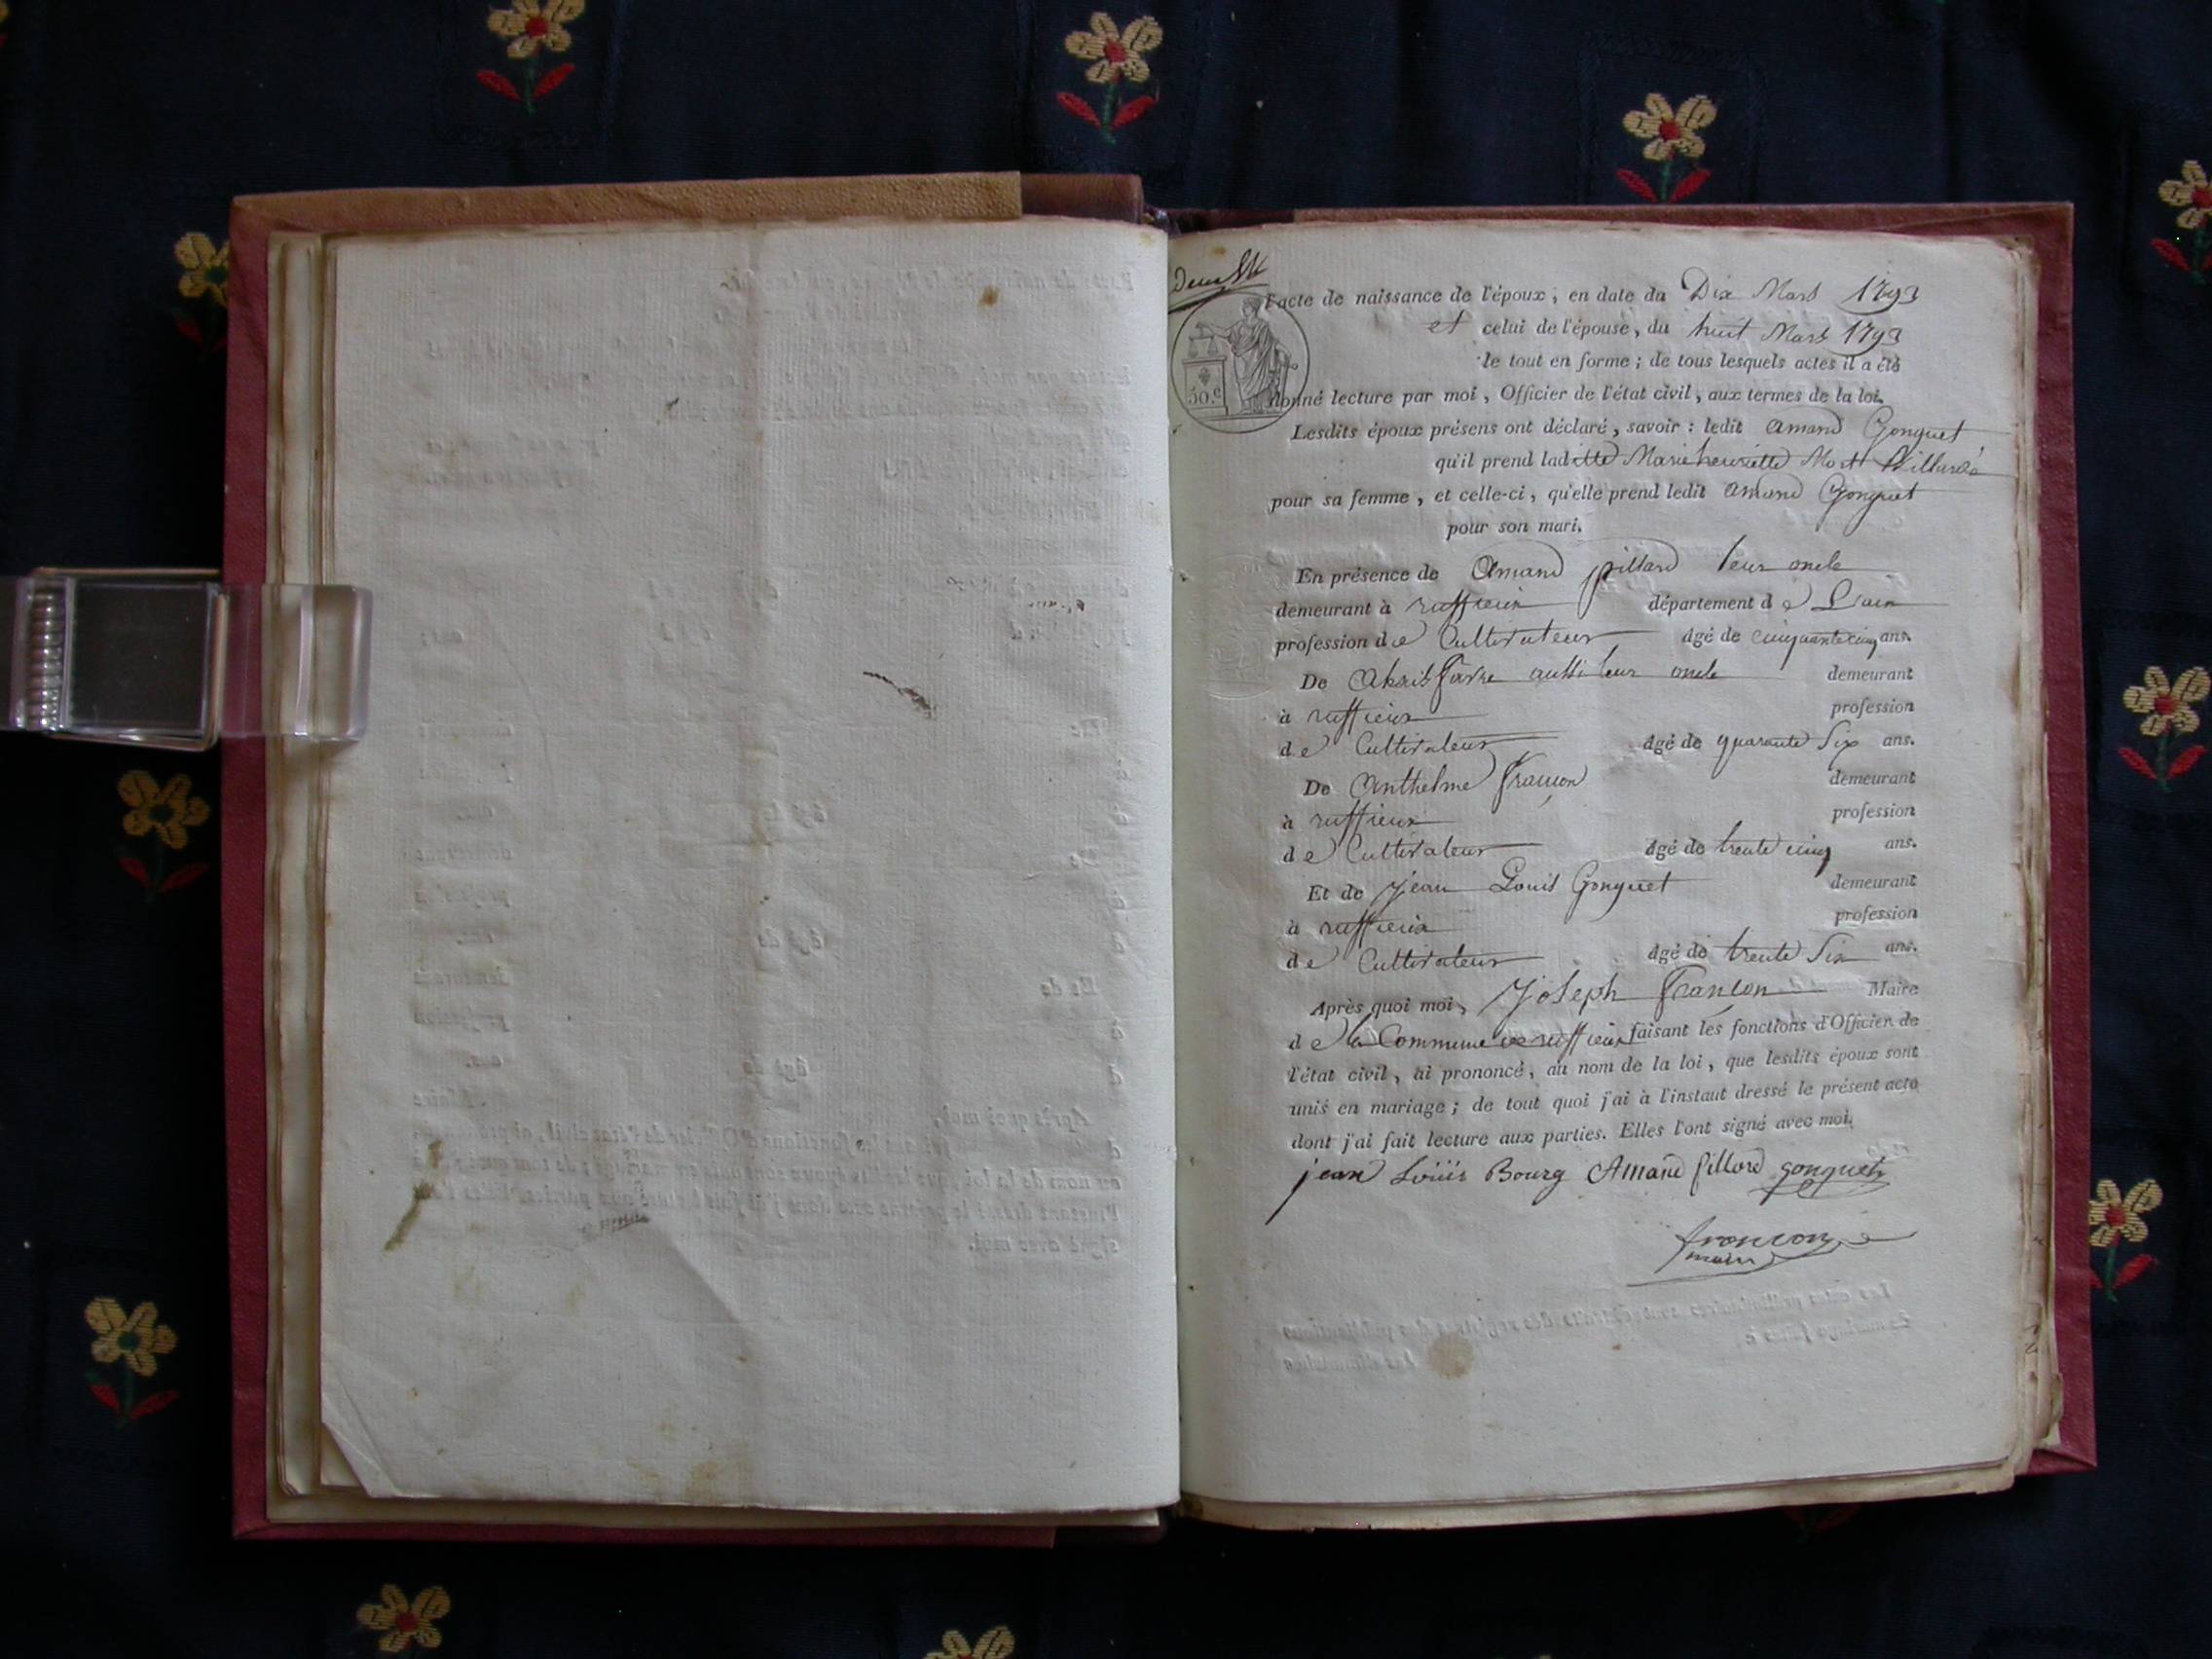 l'acte de naissance de l'époux, en date du Dix Mars 1793
et celui de l'épouse, du huit Mars 1793
le tout en forme ; de tous lesquels actes il a été
50.c
donné lecture par moi, Officier de l'état civil, aux termes de la loi.
Lesdits époux présens ont déclaré, savoir : ledit amand Gonguet
qu'il prend ladite Marie henriette
pour sa femme, et celle-ci, qu'elle prend ledit amand Gonguet
pour son mari.
En présence de Amand pillard leur oncle
demeurant à ruffieux département de L'ain
profession de Cultivateur âgé de cinquante cinq ans.
De aussi leur oncle demeurant
à ruffieux profession
de Cultivateur âgé de quarante Six ans.
De Anthelme françon demeurant
à ruffieux profession
de Cultivateur âgé de trente cinq ans.
Et de Jean Louis Gonguet demeurant
à ruffieux profession
de Cultivateur âgé de trente Six ans.
Après quoi moi, Joseph françon Maire
de la Commune de ruffieux faisant les fonctions d'Officier de
l'état civil, ai prononcé, au nom de la loi, que lesdits époux sont
unis en mariage ; de tout quoi j'ai à l'instant dressé le présent acte
dont j'ai fait lecture aux parties. Elles l'ont signé avec moi.
jean Loüis Bourg Amand pillard gonguet
françon
maire